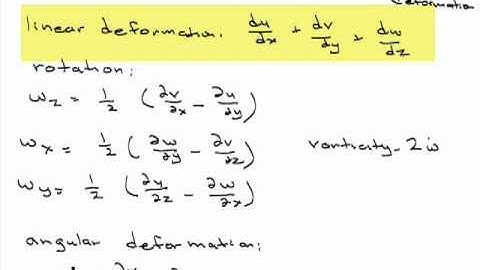 deformation
linear deformation: du/dx + dv/dy + dw/dz
rotation:
ωz = 1/2 (∂v/∂x - ∂u/∂y)
ωx = 1/2 (∂w/∂y - ∂v/∂z)
vorticity - 2ω
ωy = 1/2 (∂u/∂z - ∂w/∂x)
angular deformation: